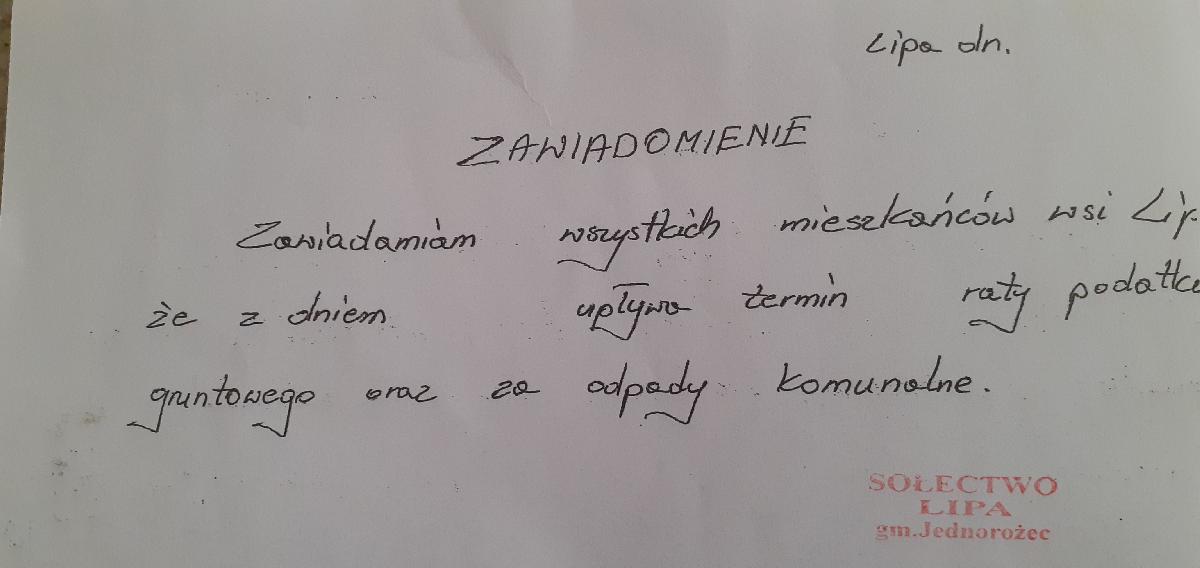 Lipa dn.
ZAWIADOMIENIE
Zawiadamiam wszystkich mieszkańców wsi Lip
że z dniem upływa termin raty podatku
gruntowego oraz za odpady komunalne.
SOŁECTWO
LIPA
gm.Jednorożec